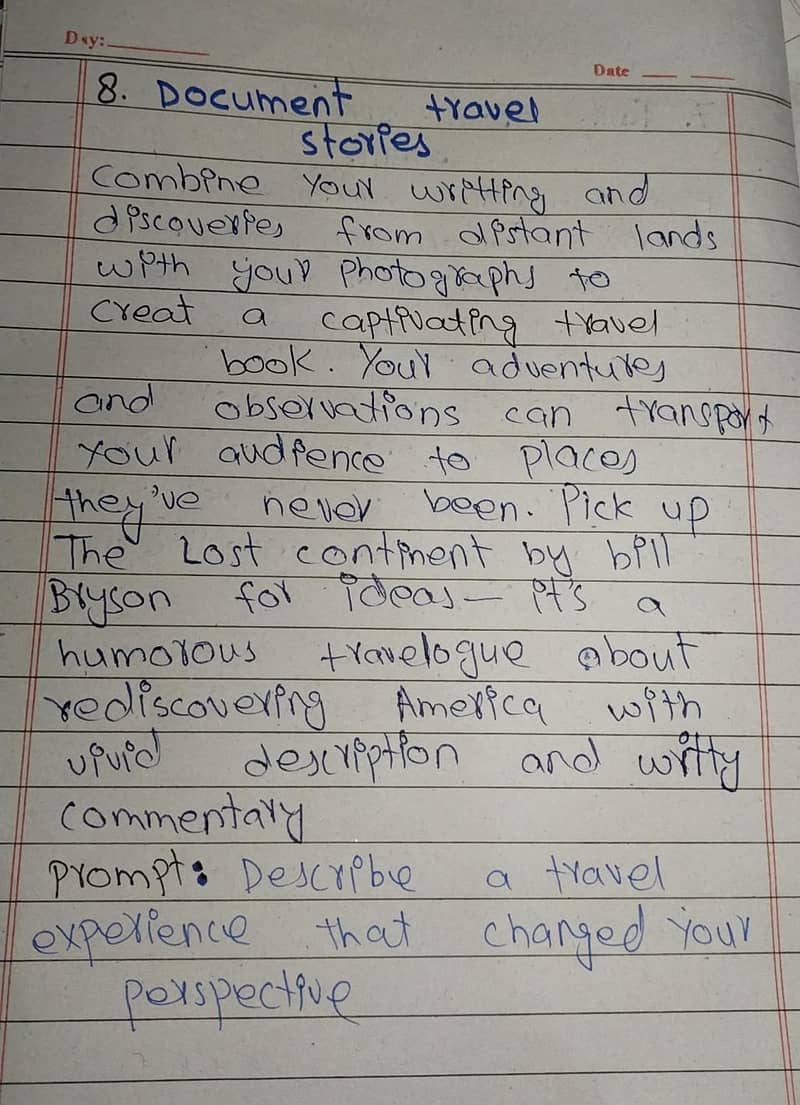 Day:
Date
8. Document travel
stories
Combine Your writting and
discoveries from distant lands
with your Photographs to
Creat a captivating travel
book. Your adventures
and observations can transport
Your audience to places
they've never been. Pick up
The Lost continent by bill
Bryson for ideas— it's a
humorous travelogue about
rediscovering America with
vivid description and writty
Commentary
Prompt: Describe a travel
experience that changed Your
perspective